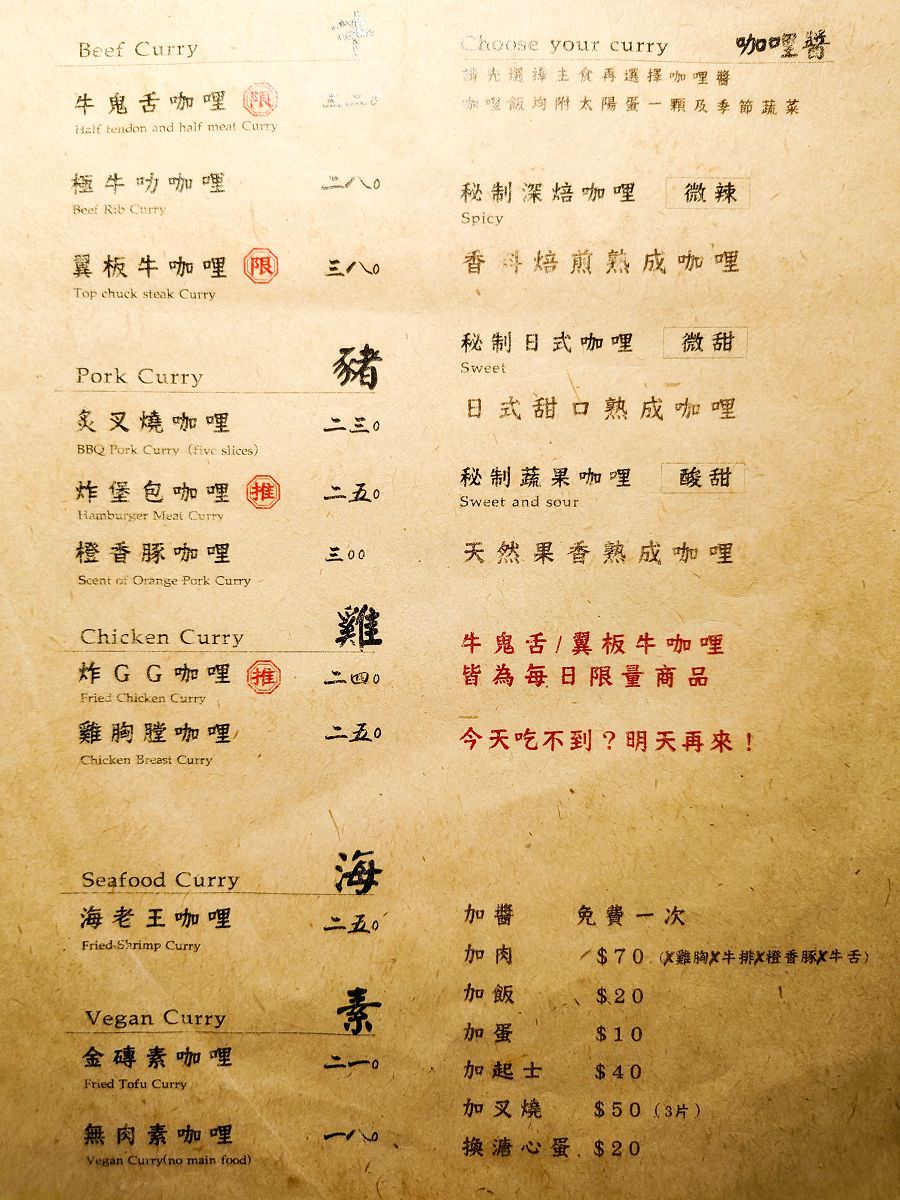 Beef Curry 牛
牛鬼舌咖哩 限
Half tendon and half meat Curry
極牛肋咖哩 二八〇
Beef Rib Curry
翼板牛咖哩 限 三八〇
Top chuck steak Curry
Pork Curry 豬
炙叉燒咖哩 二三〇
BBQ Pork Curry (five slices)
炸堡包咖哩 推 二五〇
Hamburger Meat Curry
橙香豚咖哩 三〇〇
Scent of Orange Pork Curry
Chicken Curry 雞
炸GG咖哩 推 二四〇
Fried Chicken Curry
雞胸膛咖哩 二五〇
Chicken Breast Curry
Seafood Curry 海
海老王咖哩 二五〇
Fried Shrimp Curry
Vegan Curry 素
金磚素咖哩 二一〇
Fried Tofu Curry
無肉素咖哩 一八〇
Vegan Curry(no main food)
Choose your curry 咖哩醬
請先選擇主食再選擇咖哩醬
咖哩飯均附太陽蛋一顆及季節蔬菜
秘制深焙咖哩 微辣
Spicy
香料焙煎熟成咖哩
秘制日式咖哩 微甜
Sweet
日式甜口熟成咖哩
秘制蔬果咖哩 酸甜
Sweet and sour
天然果香熟成咖哩
牛鬼舌/翼板牛咖哩
皆為每日限量商品
今天吃不到?明天再來!
加醬 免費一次
加肉 $70 (✗雞胸✗牛排✗橙香豚✗牛舌)
加飯 $20
加蛋 $10
加起士 $40
加叉燒 $50 (3片)
換溏心蛋 $20